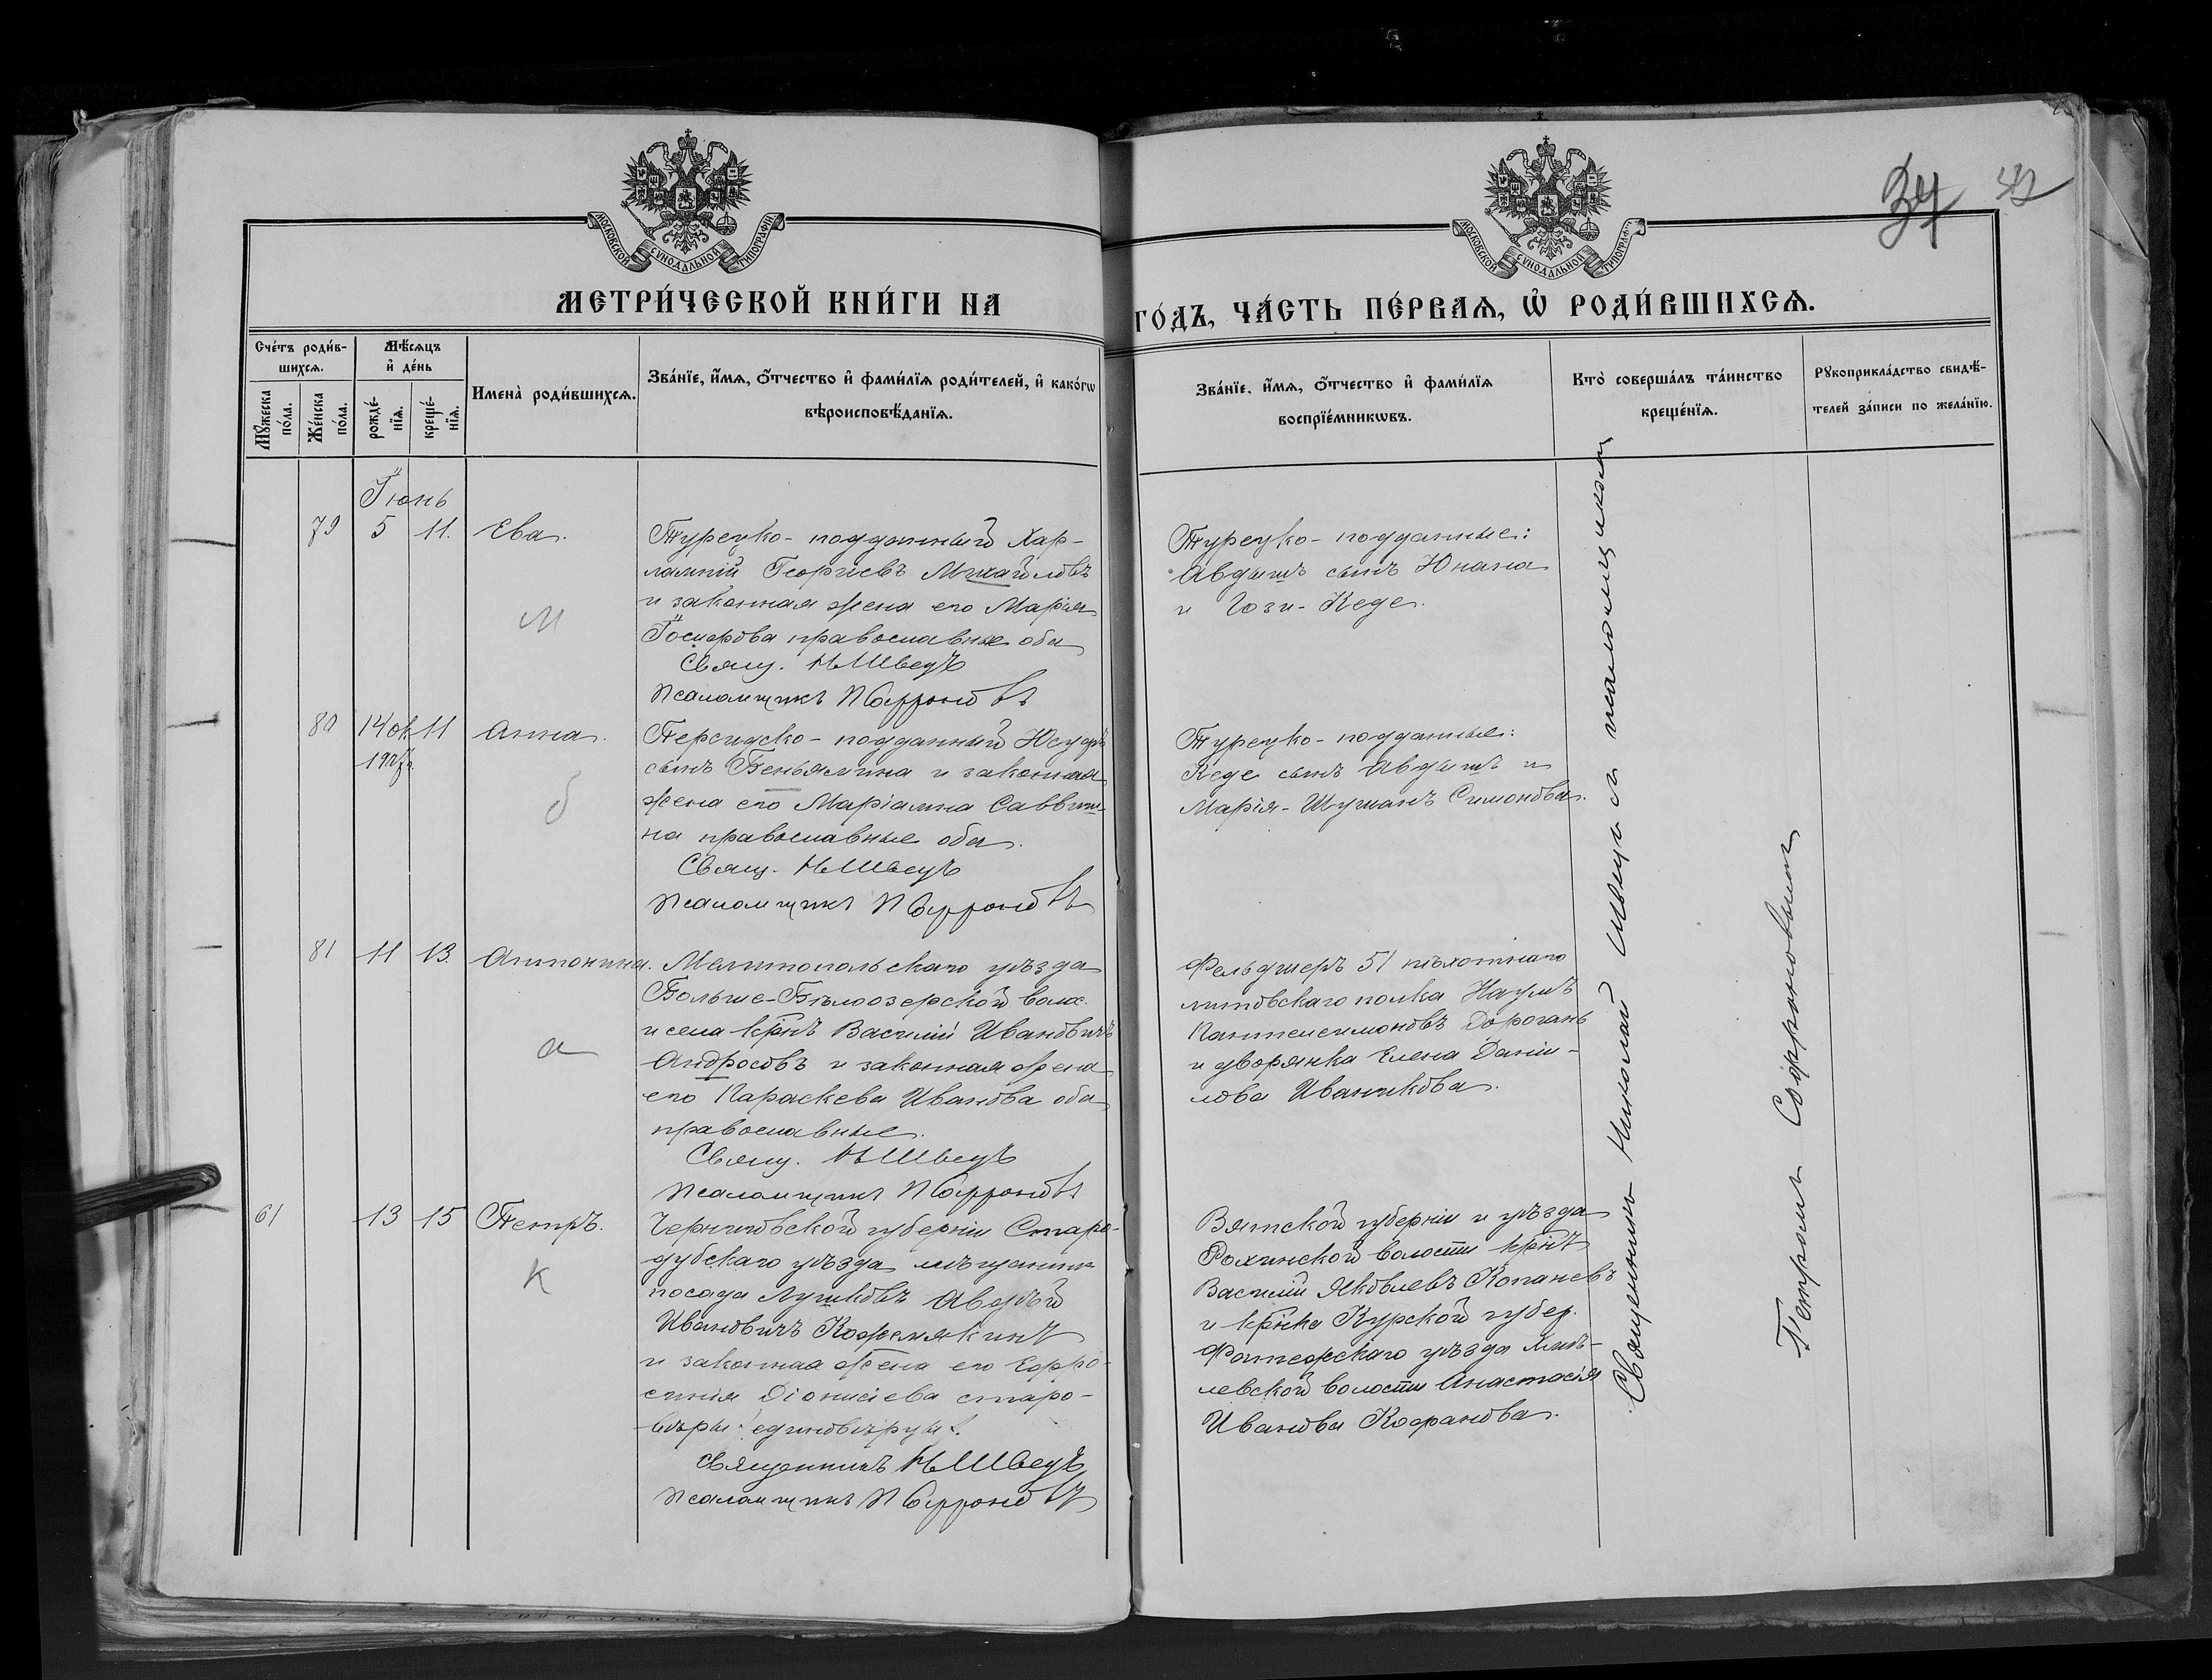 34 42
МОСКОВСКОЙ СѴНОДАЛЬНОЙ ТИПОГРАФІИ
МОСКОВСКОЙ СѴНОДАЛЬНОЙ ТИПОГРАФІИ
МЕТРИ́ЧЕСКОЙ КНИ́ГИ НА
ГО́ДЪ, ЧА́СТЬ ПЕ́РВАѦ, Ѡ҆ РОДИ́ВШИХСѦ.
Сче́тъ роди́в-
шихсѧ.
Мꙋжеска по́ла.
Же́нска по́ла.
Мѣ́сѧцъ
и҆ де́нь
рожде́-
нїѧ.
креще́-
нїѧ.
Имена̀ роди́вшихсѧ.
Зва́нїе, и҆́мѧ, ѻ҆́тчество и҆ фами́лїѧ роди́телей, и҆ како́гѡ
вѣроисповѣ́данїѧ.
Зва́нїе, и҆́мѧ, ѻ҆́тчество и҆ фами́лїѧ
воспрїе́мникѡвъ.
Кто̀ соверша́лъ та́инство
креще́нїѧ.
Рꙋкоприкла́дство свидѣ́-
телей за́писи по жела́нїю.
Іюнь
79 5 11. Ева.
Турецко-подданный Хар-
лампій Георгіевъ Михайловъ
и законная жена его Марія
Іосифова православные оба
Свящ. Н Швецъ
Псаломщикъ П Софроновъ
Турецко-подданные:
Авдышъ сынъ Юнана
и Гози-Кеде.
М
80 14 ок 11 Анна.
Персидско-подданный Юсуфъ
сынъ Беньямина и законная
жена его Маріамна Саввиш-
на православные оба.
Свящ. Н Швецъ
Псаломщикъ П Софроновъ
Турецко-подданные:
Кеде сынъ Авдышъ и
Марія-Шушанъ Симонова.
б
81 11 13. Антонина.
Мелитопольскаго уѣзда
Больше-Бѣлозерской волос.
и села кр-нъ Василій Ивановичъ
Андросовъ и законная жена
его Параскева Иванова оба
православные.
Свящ. Н Швецъ
Псаломщикъ П Софроновъ
Фельдшеръ 51 пѣхотнаго
литовскаго полка Наумъ
Пантелеимоновъ Дорогань
и дворянка Елена Даніи-
лова Иваникова.
а
61 13 15 Петръ.
Черниговской губерніи Старо-
дубскаго уѣзда мѣщанинъ
посада Лужковъ Авдѣй
Ивановичъ Кожемякинъ
и законная жена его Ефро-
синія Діонисіева старо-
вѣры единовѣрцы.
Священникъ Н Швецъ
Псаломщикъ П Софроновъ
Вятской губерніи и уѣзда
волости кр-нъ
Василій Яковлевъ Копаневъ
и кр-нка Курской губер.
Фатежскаго уѣзда Хмѣ-
левской волости Анастасія
Иванова Кофанова.
К
Священникъ Николай Швецъ и псаломщикомъ
Петромъ Софроновымъ